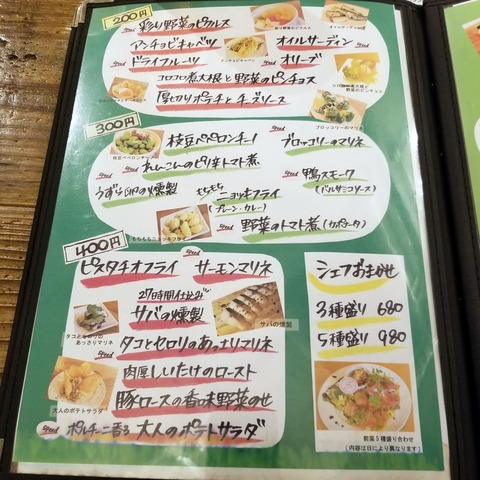 200円
彩り野菜のピクルス
アンチョビキャベツ
オイルサーディン
speed ドライフルーツ
speed オリーブ
コロコロ煮大根と野菜のピンチョス
厚切りポテチとチーズソース
300円
speed 枝豆ペペロンチーノ
枝豆ペペロンチーノ
speed ブロッコリーのマリネ
ブロッコリーのマリネ
speed れんこんのピリ辛トマト煮
speed 鴨スモーク
(バルサミコソース)
うずら卵の燻製
もちもち ニョッキフライ
(プレーン・カレー)
もちもちニョッキフライ
speed 野菜のトマト煮(カポナータ)
400円
ピスタチオフライ
speed サーモンマリネ
27時間仕込み
サバの燻製
サバの燻製
タコとセロリの
あっさりマリネ
speed タコとセロリのあっさりマリネ
肉厚しいたけのロースト
豚ロースの香味野菜のせ
大人のポテトサラダ
speed ポルチーニ香る 大人のポテトサラダ
シェフおまかせ
3種盛り 680
5種盛り 980
前菜5種盛り合わせ
(内容は日により異なります)